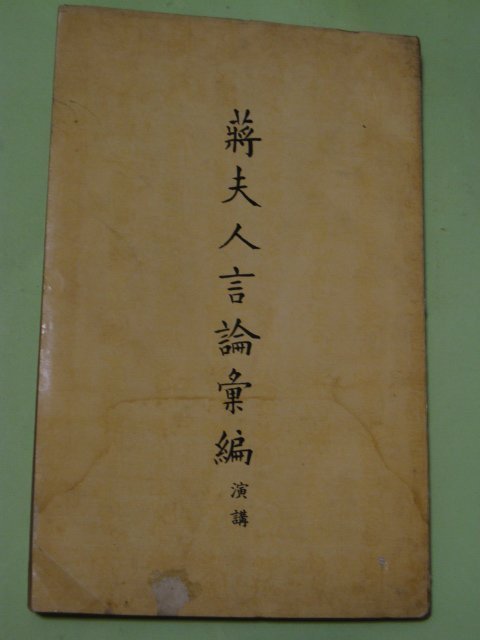 蔣夫人言論彙編
演講